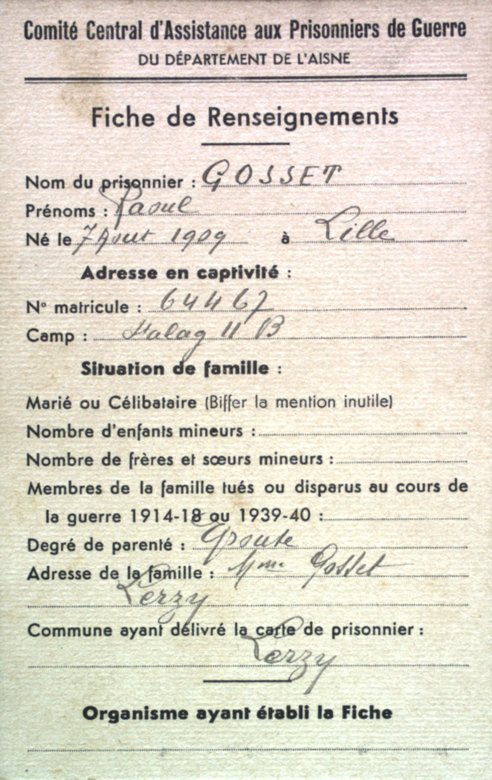 Comité Central d'Assistance aux Prisonniers de Guerre
DU DÉPARTEMENT DE L'AISNE
Fiche de Renseignements
Nom du prisonnier : GOSSET
Prénoms : Raoul
Né le 7 Aout 1909 à Lille
Adresse en captivité :
N° matricule : 64467
Camp : Stalag II B
Situation de famille :
Marié ou Célibataire (Biffer la mention inutile)
Nombre d'enfants mineurs :
Nombre de frères et sœurs mineurs :
Membres de la famille tués ou disparus au cours de
la guerre 1914-18 ou 1939-40 :
Degré de parenté :
Adresse de la famille : Mme Gosset
Lerzy
Commune ayant délivré la carte de prisonnier :
Lerzy
Organisme ayant établi la Fiche